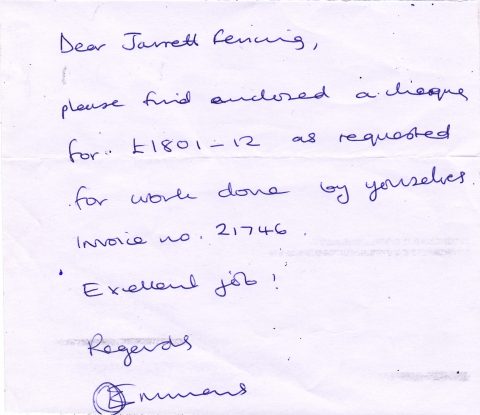 Dear Jarrett Fencing,
please find enclosed a cheque
for £1801-12 as requested
for work done by yourselves.
Invoice no. 21746.
Excellent job!
Regards
Emmens